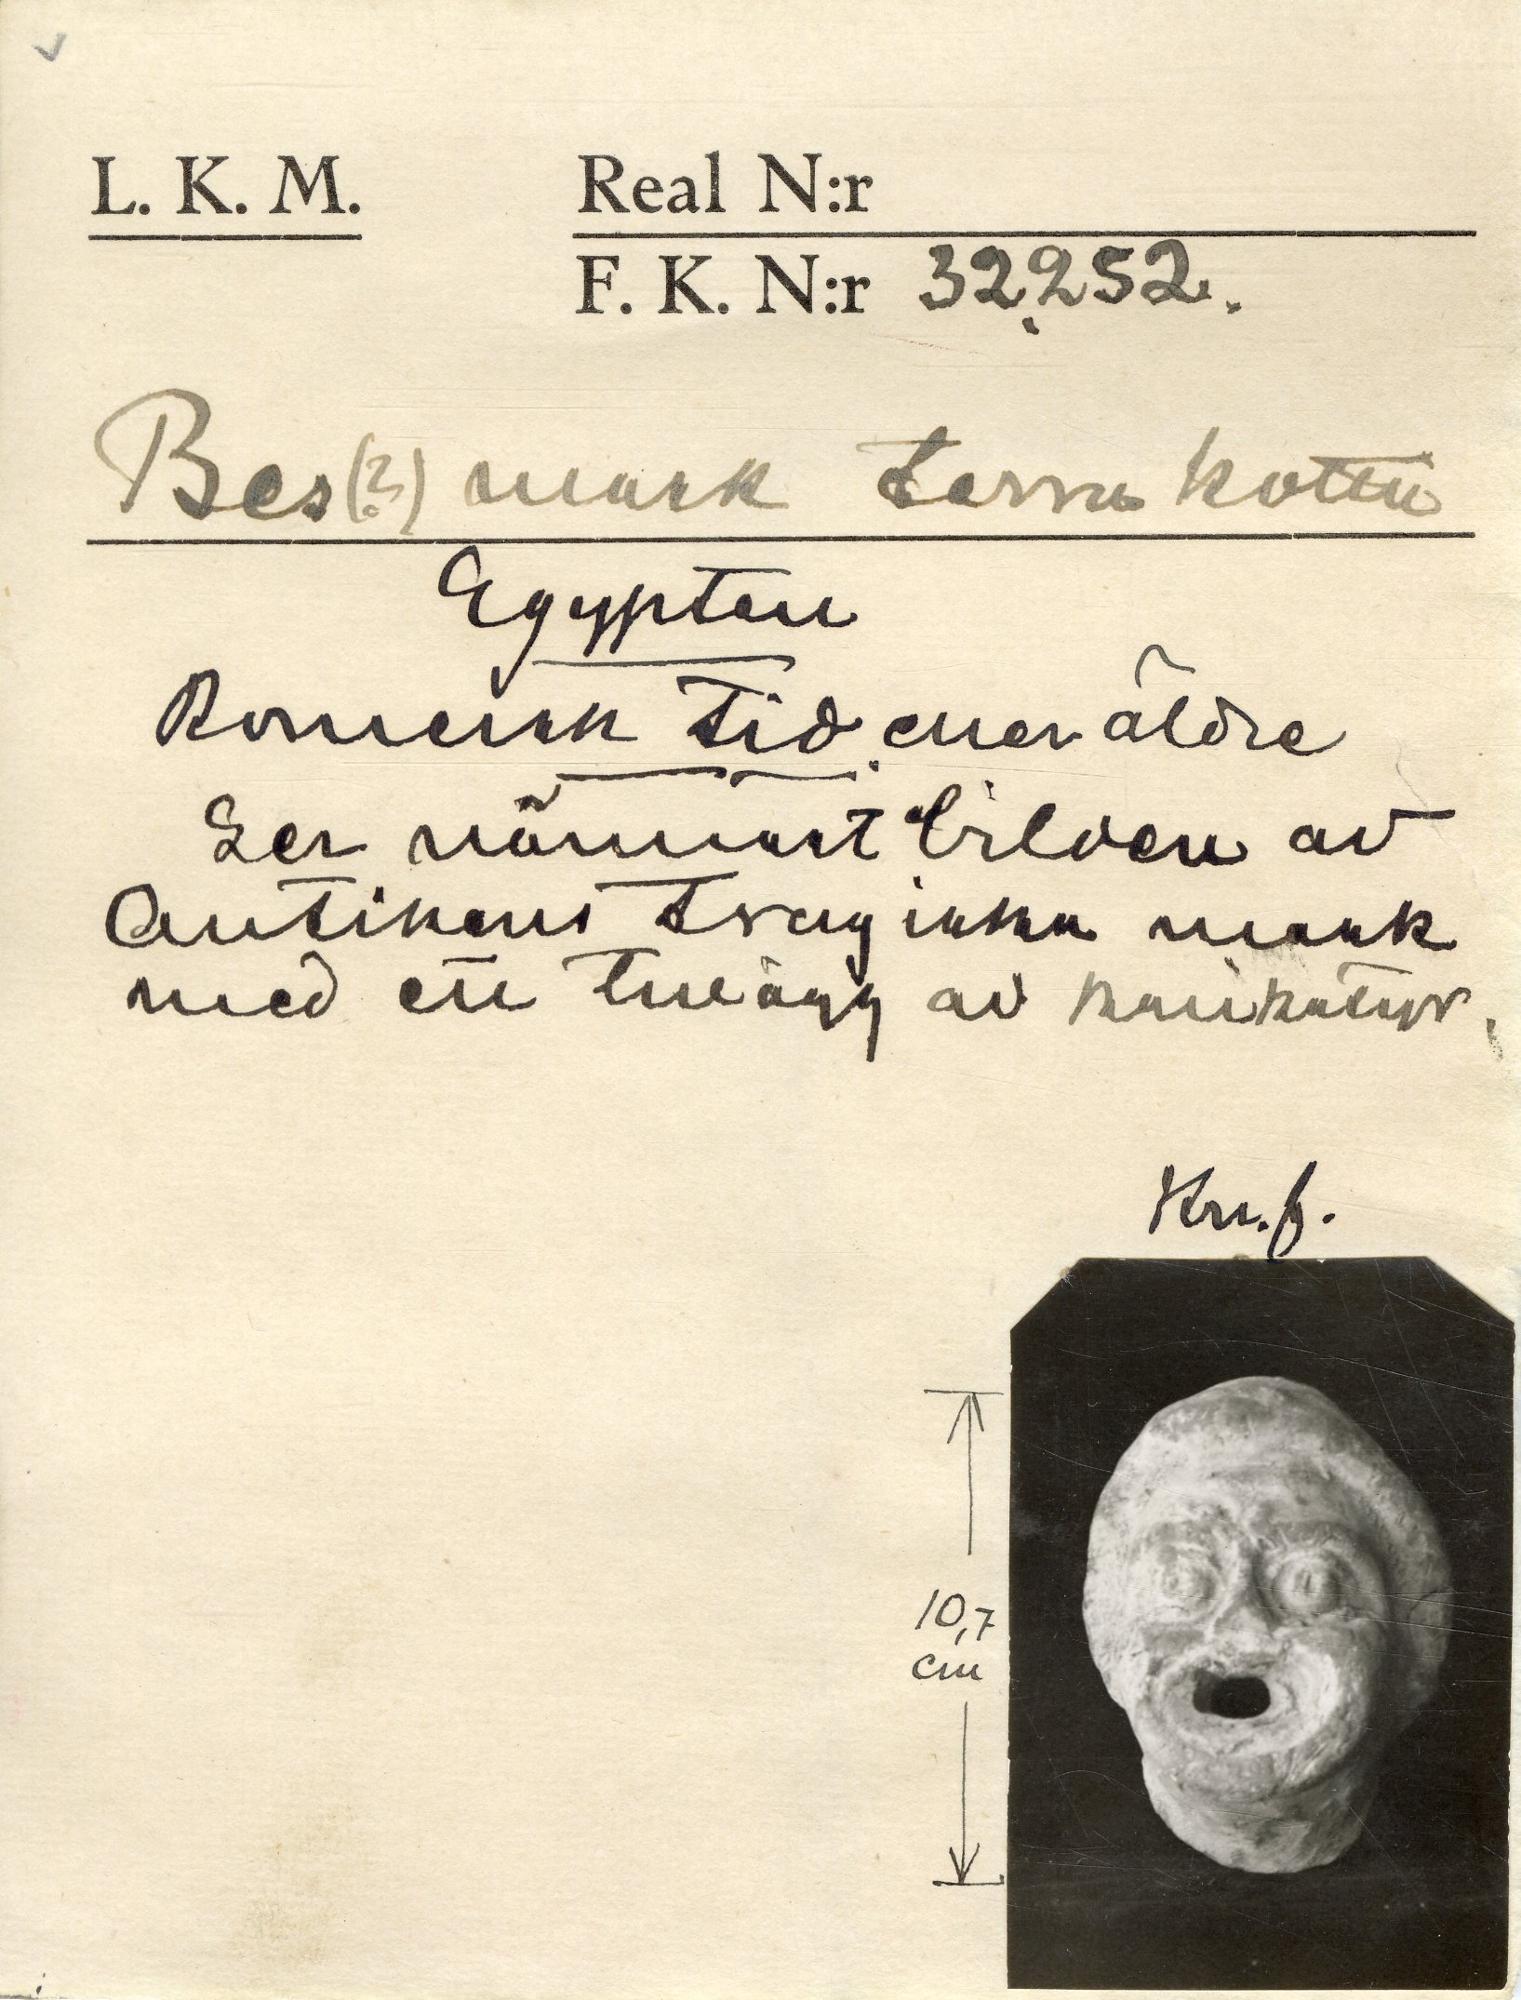 L. K. M.
Real N:r
F. K. N:r 32,252.
Bes(?) mask terra kotta
Egypten
Romersk tid eller äldre
Ger närmast bilden av
Antikens tragiska mask
med ett inlägg av karikatyr.
10,7
cm